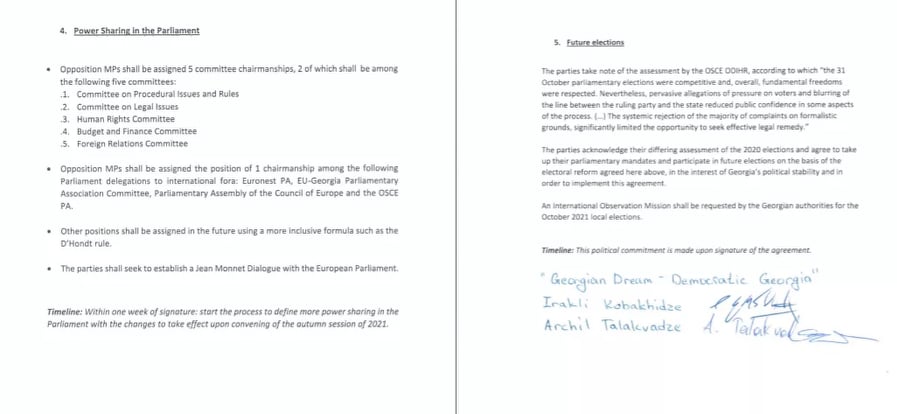 4. Power Sharing in the Parliament
• Opposition MPs shall be assigned 5 committee chairmanships, 2 of which shall be among
the following five committees:
.1. Committee on Procedural Issues and Rules
.2. Committee on Legal Issues
.3. Human Rights Committee
.4. Budget and Finance Committee
.5. Foreign Relations Committee
• Opposition MPs shall be assigned the position of 1 chairmanship among the following
Parliament delegations to international fora: Euronest PA, EU-Georgia Parliamentary
Association Committee, Parliamentary Assembly of the Council of Europe and the OSCE
PA.
• Other positions shall be assigned in the future using a more inclusive formula such as the
D'Hondt rule.
• The parties shall seek to establish a Jean Monnet Dialogue with the European Parliament.
Timeline: Within one week of signature: start the process to define more power sharing in the
Parliament with the changes to take effect upon convening of the autumn session of 2021.
5. Future elections
The parties take note of the assessment by the OSCE ODIHR, according to which "the 31
October parliamentary elections were competitive and, overall, fundamental freedoms
were respected. Nevertheless, pervasive allegations of pressure on voters and blurring of
the line between the ruling party and the state reduced public confidence in some aspects
of the process. (...) The systemic rejection of the majority of complaints on formalistic
grounds, significantly limited the opportunity to seek effective legal remedy."
The parties acknowledge their differing assessment of the 2020 elections and agree to take
up their parliamentary mandates and participate in future elections on the basis of the
electoral reform agreed here above, in the interest of Georgia's political stability and in
order to implement this agreement.
An International Observation Mission shall be requested by the Georgian authorities for the
October 2021 local elections.
Timeline: This political commitment is made upon signature of the agreement.
"Georgian Dream - Democratic Georgia"
Irakli Kobakhidze
Archil Talakvadze A. Talakvad